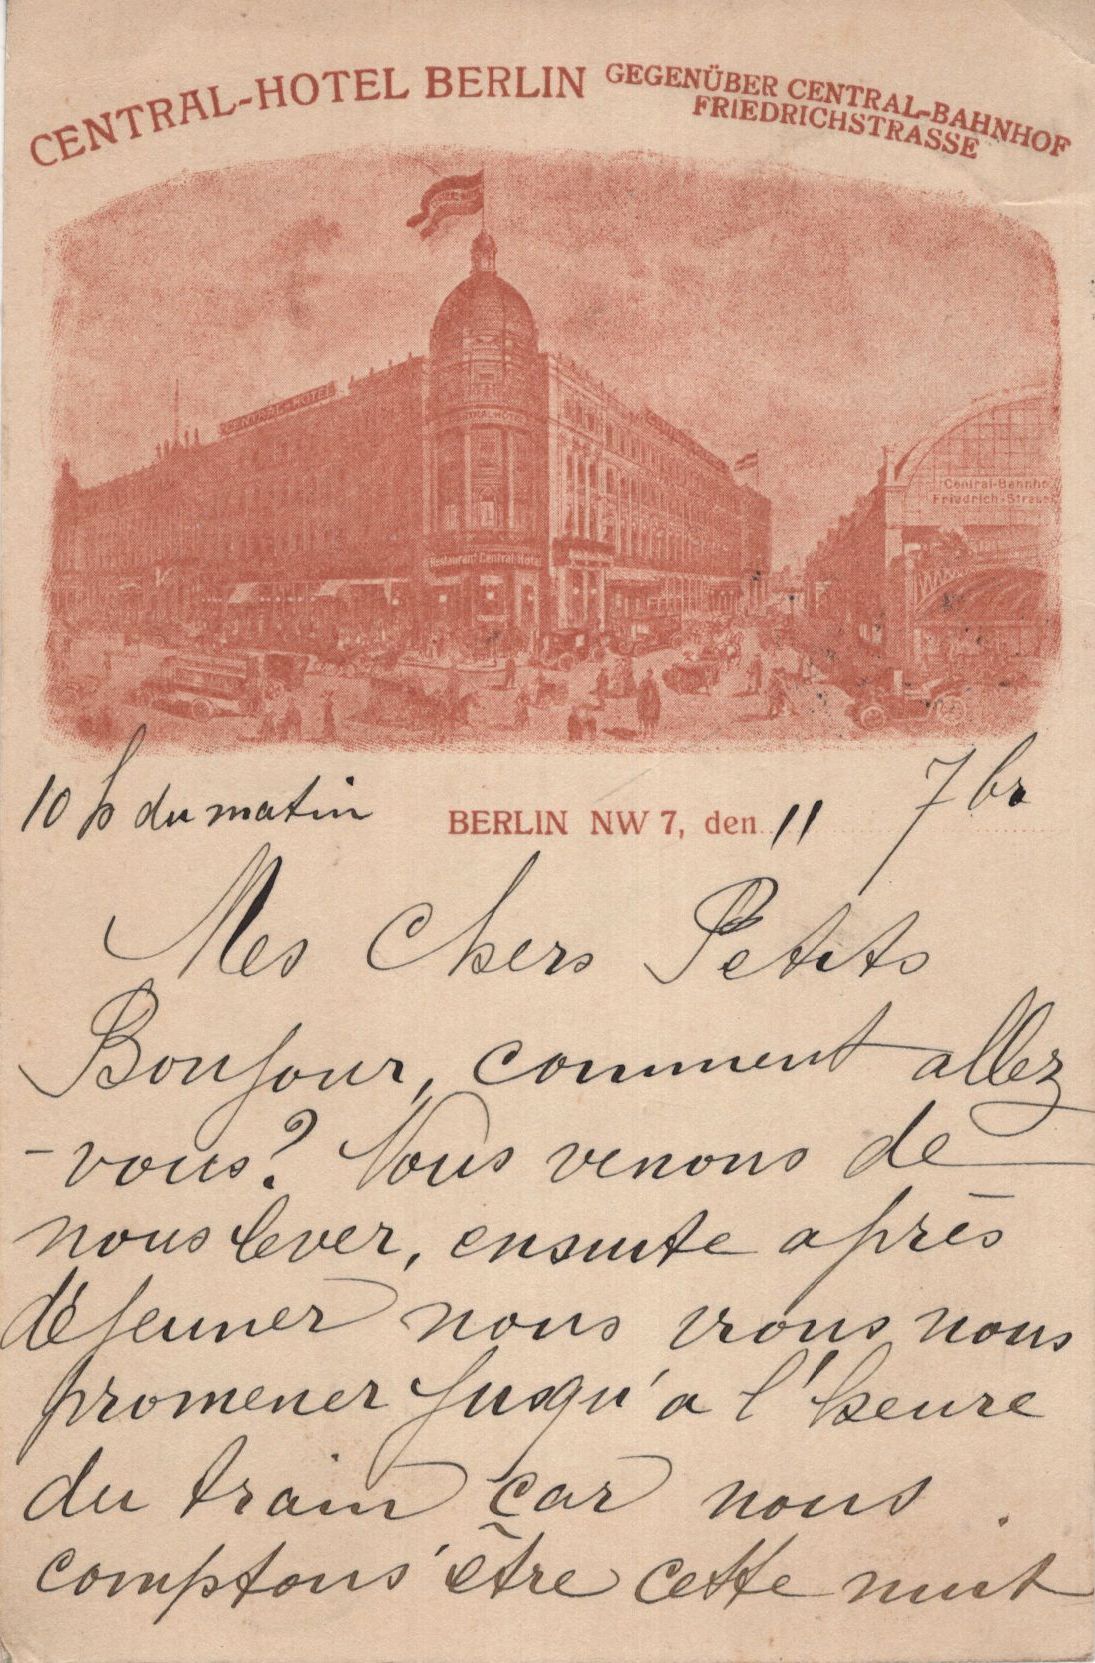 CENTRAL-HOTEL BERLIN GEGENÜBER CENTRAL-BAHNHOF
FRIEDRICHSTRASSE
CENTRAL-HOTEL
CENTRAL HOTEL
Central-Bahnho
Friedrich-Strasse
Restaurant Central-Hotel
10 h du matin
BERLIN NW 7, den 11 7bre
Mes Chers Petits
Bonjour, comment allez
-vous? Nous venons de
nous lever, ensuite après
déjeuner nous irons nous
promener jusqu'a l'heure
du train car nous
comptons être cette nuit